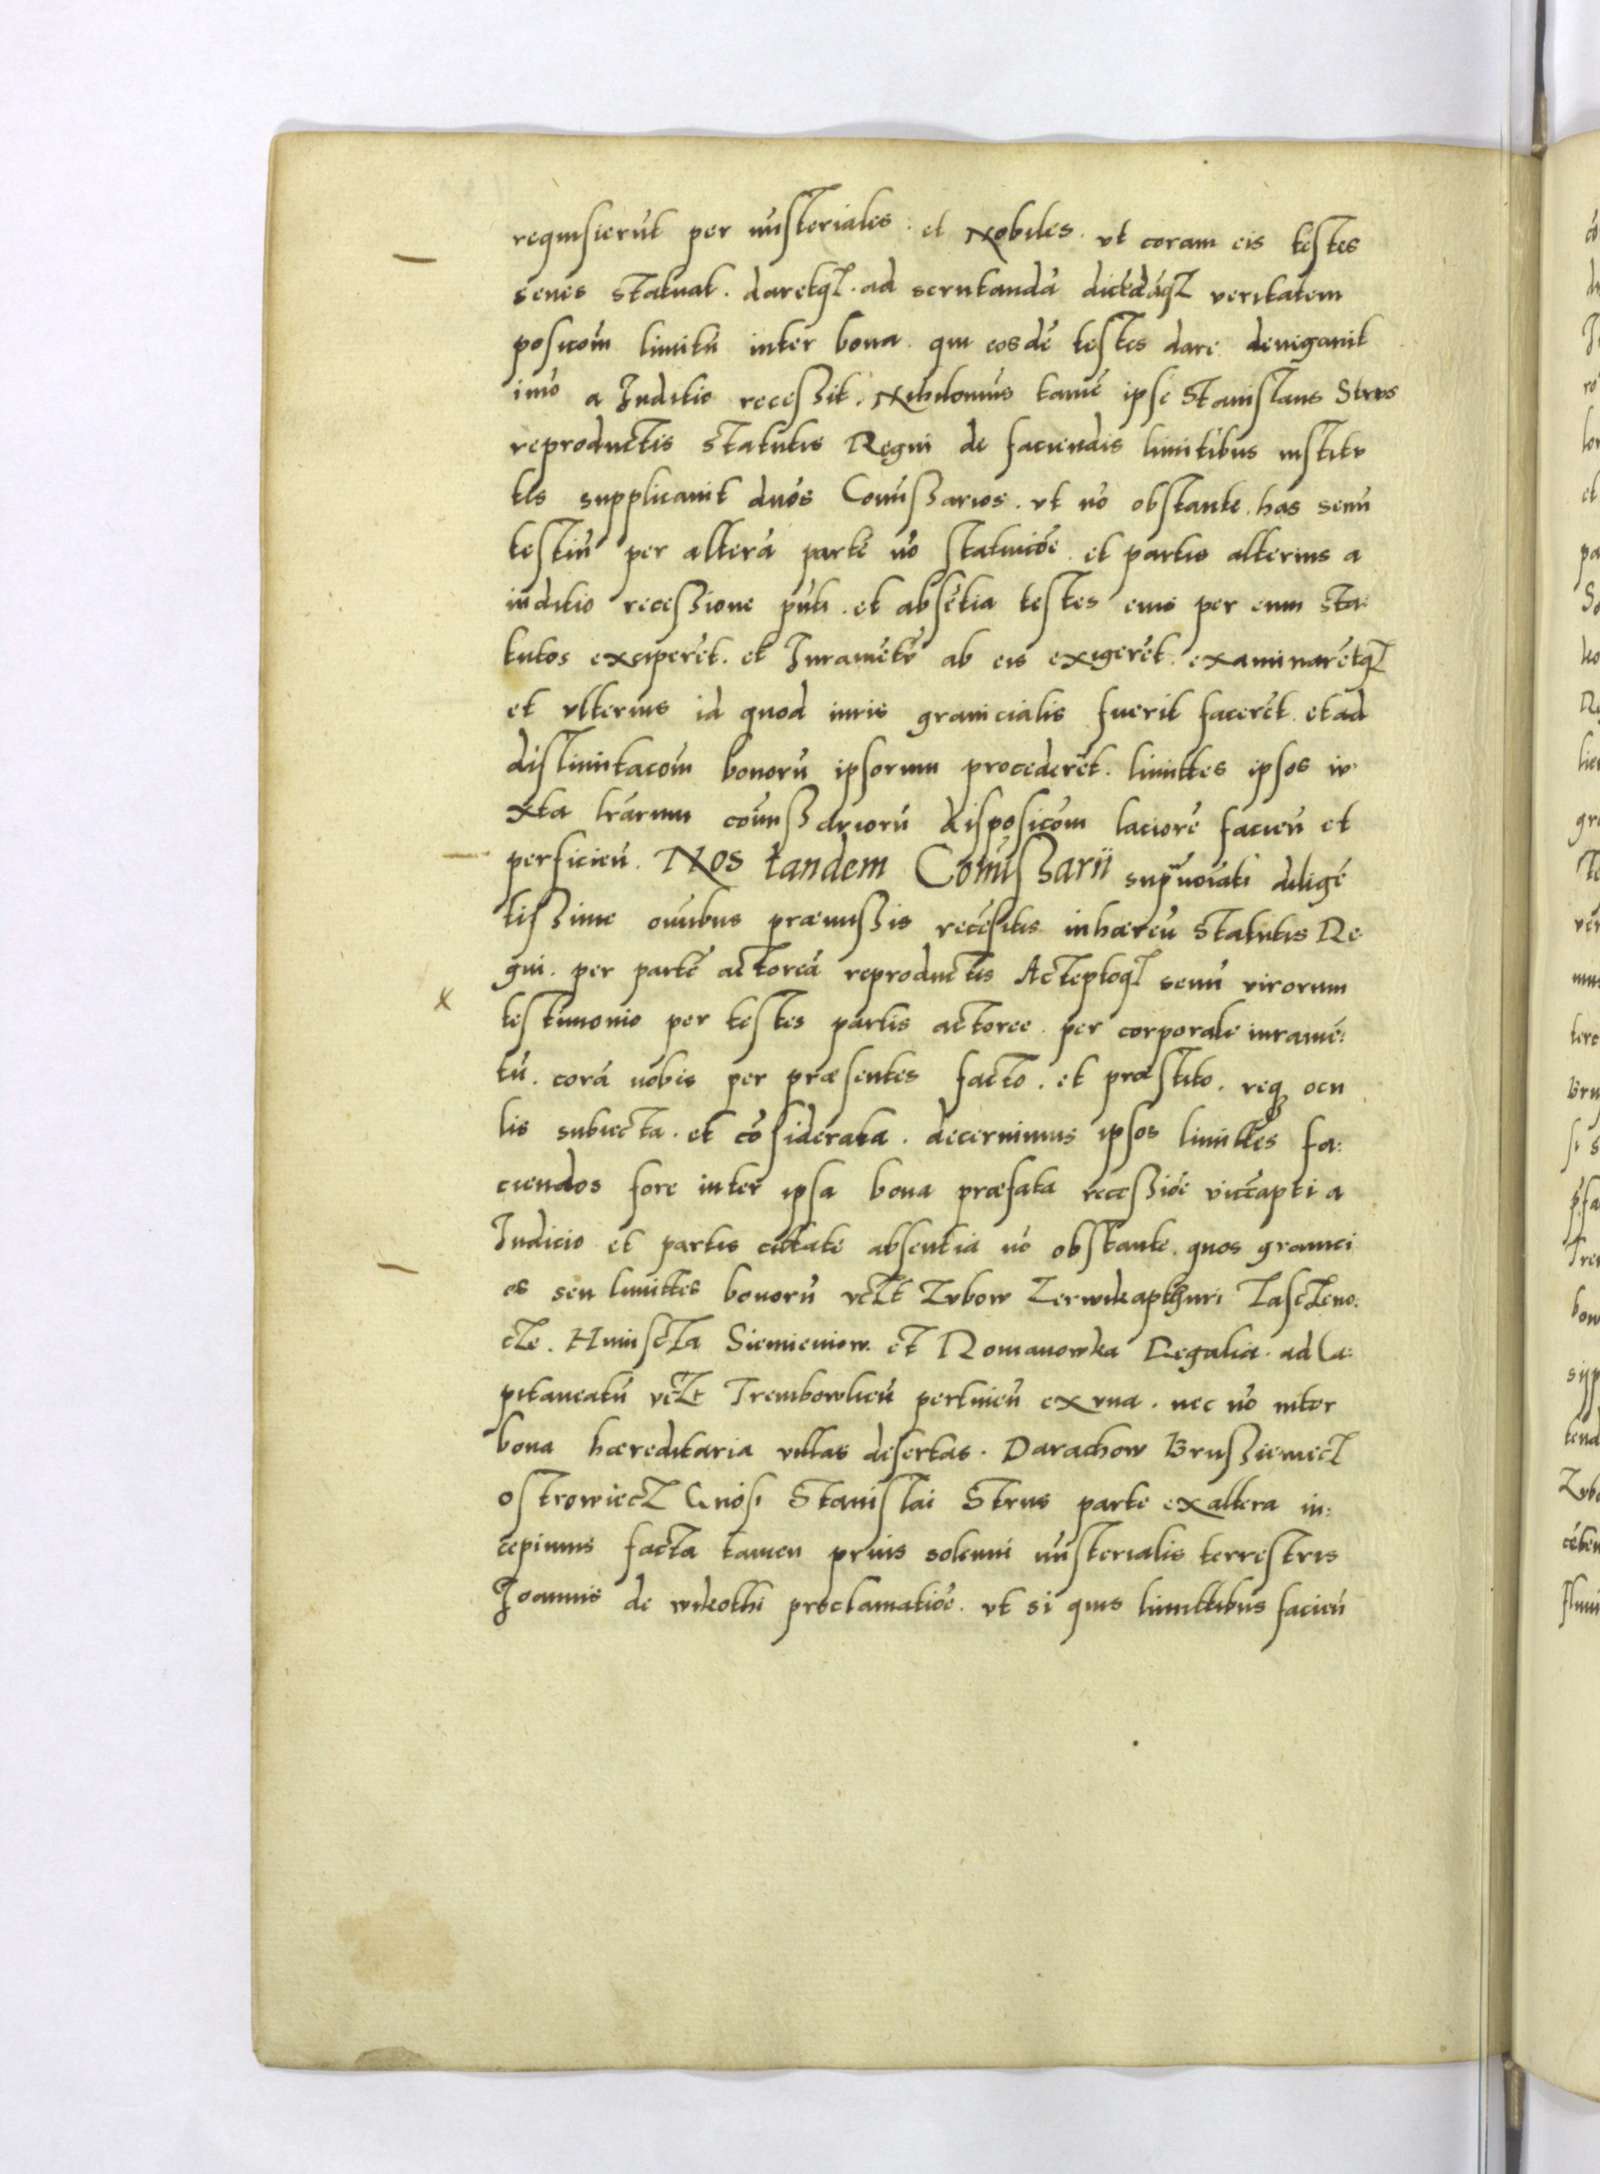 requisierūt per mīsteriales et Nobiles. vt coram eis testes
senes statuat. daretqɜ. ad scrutandā dicēdāqɜ veritatem
posicoīm limitū inter bona. qui eosdē testes dare denigauit
imō a Juditio recessit. Nihilominꝰ tamē ipse Stanislaus Strus
reproductis statutis Regni de faciendis limitibus institu
tis supplicauit duōs Comīssarios. vt nō obstante. has senū
testiū per alterā partē nō statuicōe et partis alterius a
iuditio recessione pūti. et absētia testes eius per eum sta:
tutos exciperēt. et Juramētū ab eis exigerēt. examinarētqɜ
et vlterius id quod iuris granicialis fuerit facerēt. et ad
distimitacoīm bonorū ipsorum procederēt. limittes ipsos iu:
xta lrārum comīssariorū disposicoīm laciorē facieñ et
perficieñ. Nos tandem Comīssarij supnoīati diligē
tissime oīnibus præmissis recēsitis inhæreñ statutis Re
gni. per partē actoreā reproductis Acteptoqɜ senū virorum
testimonio per testes partis actoree. per corporale iuramē:
tū. corā nobis per præsentes facto. et præstito. req̨ ocu
lis subiecta. et cōsiderata. decernimus ipsos limittes fa:
ciendos fore inter ipsa bona præfata recessiōe vicēapti a
Judicio et partis citatē absentia nō obstante. quos granici
es seu limittes bonorū vclɜt Zubow Zerwikapthuri Lasclɜeno:
clɜe. Huisclɜa Siemieniow. et Romanowka Regalia. ad Ca:
pitaneatū vclɜt Trembowlieñ pertineñ ex vna. nec nō inter
bona hæreditaria villas desertas. Darachow Brussiemieclɜ
ostrowieclɜ Gnōsi Stanislai Strus parte ex altera in:
cepimus facta tamen prius solenni mīsterialis terrestris
Joannis de wikothi proclamatiōe. vt si quis limittibus facieñ